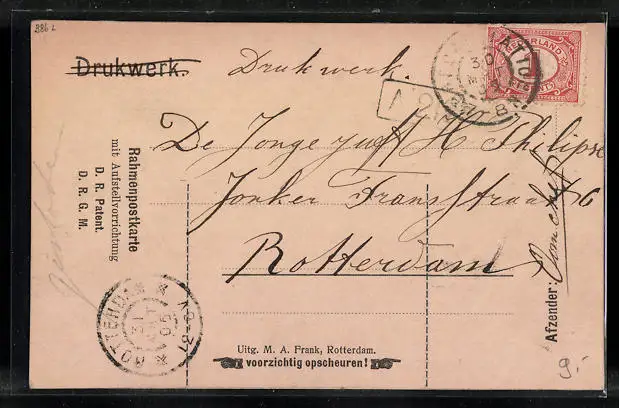 386 L
Drukwerk.
Drukwerk.
NEDERLAND
De Jongejuff H Philipse
Jonker Fransstraat 6
Rotterdam
Rahmenpostkarte
mit Aufstellvorrichtung
D. R. Patent.
D. R. G. M.
Afzender:
ROTTERDAM
Uitg. M. A. Frank, Rotterdam.
voorzichtig opscheuren!
9.-